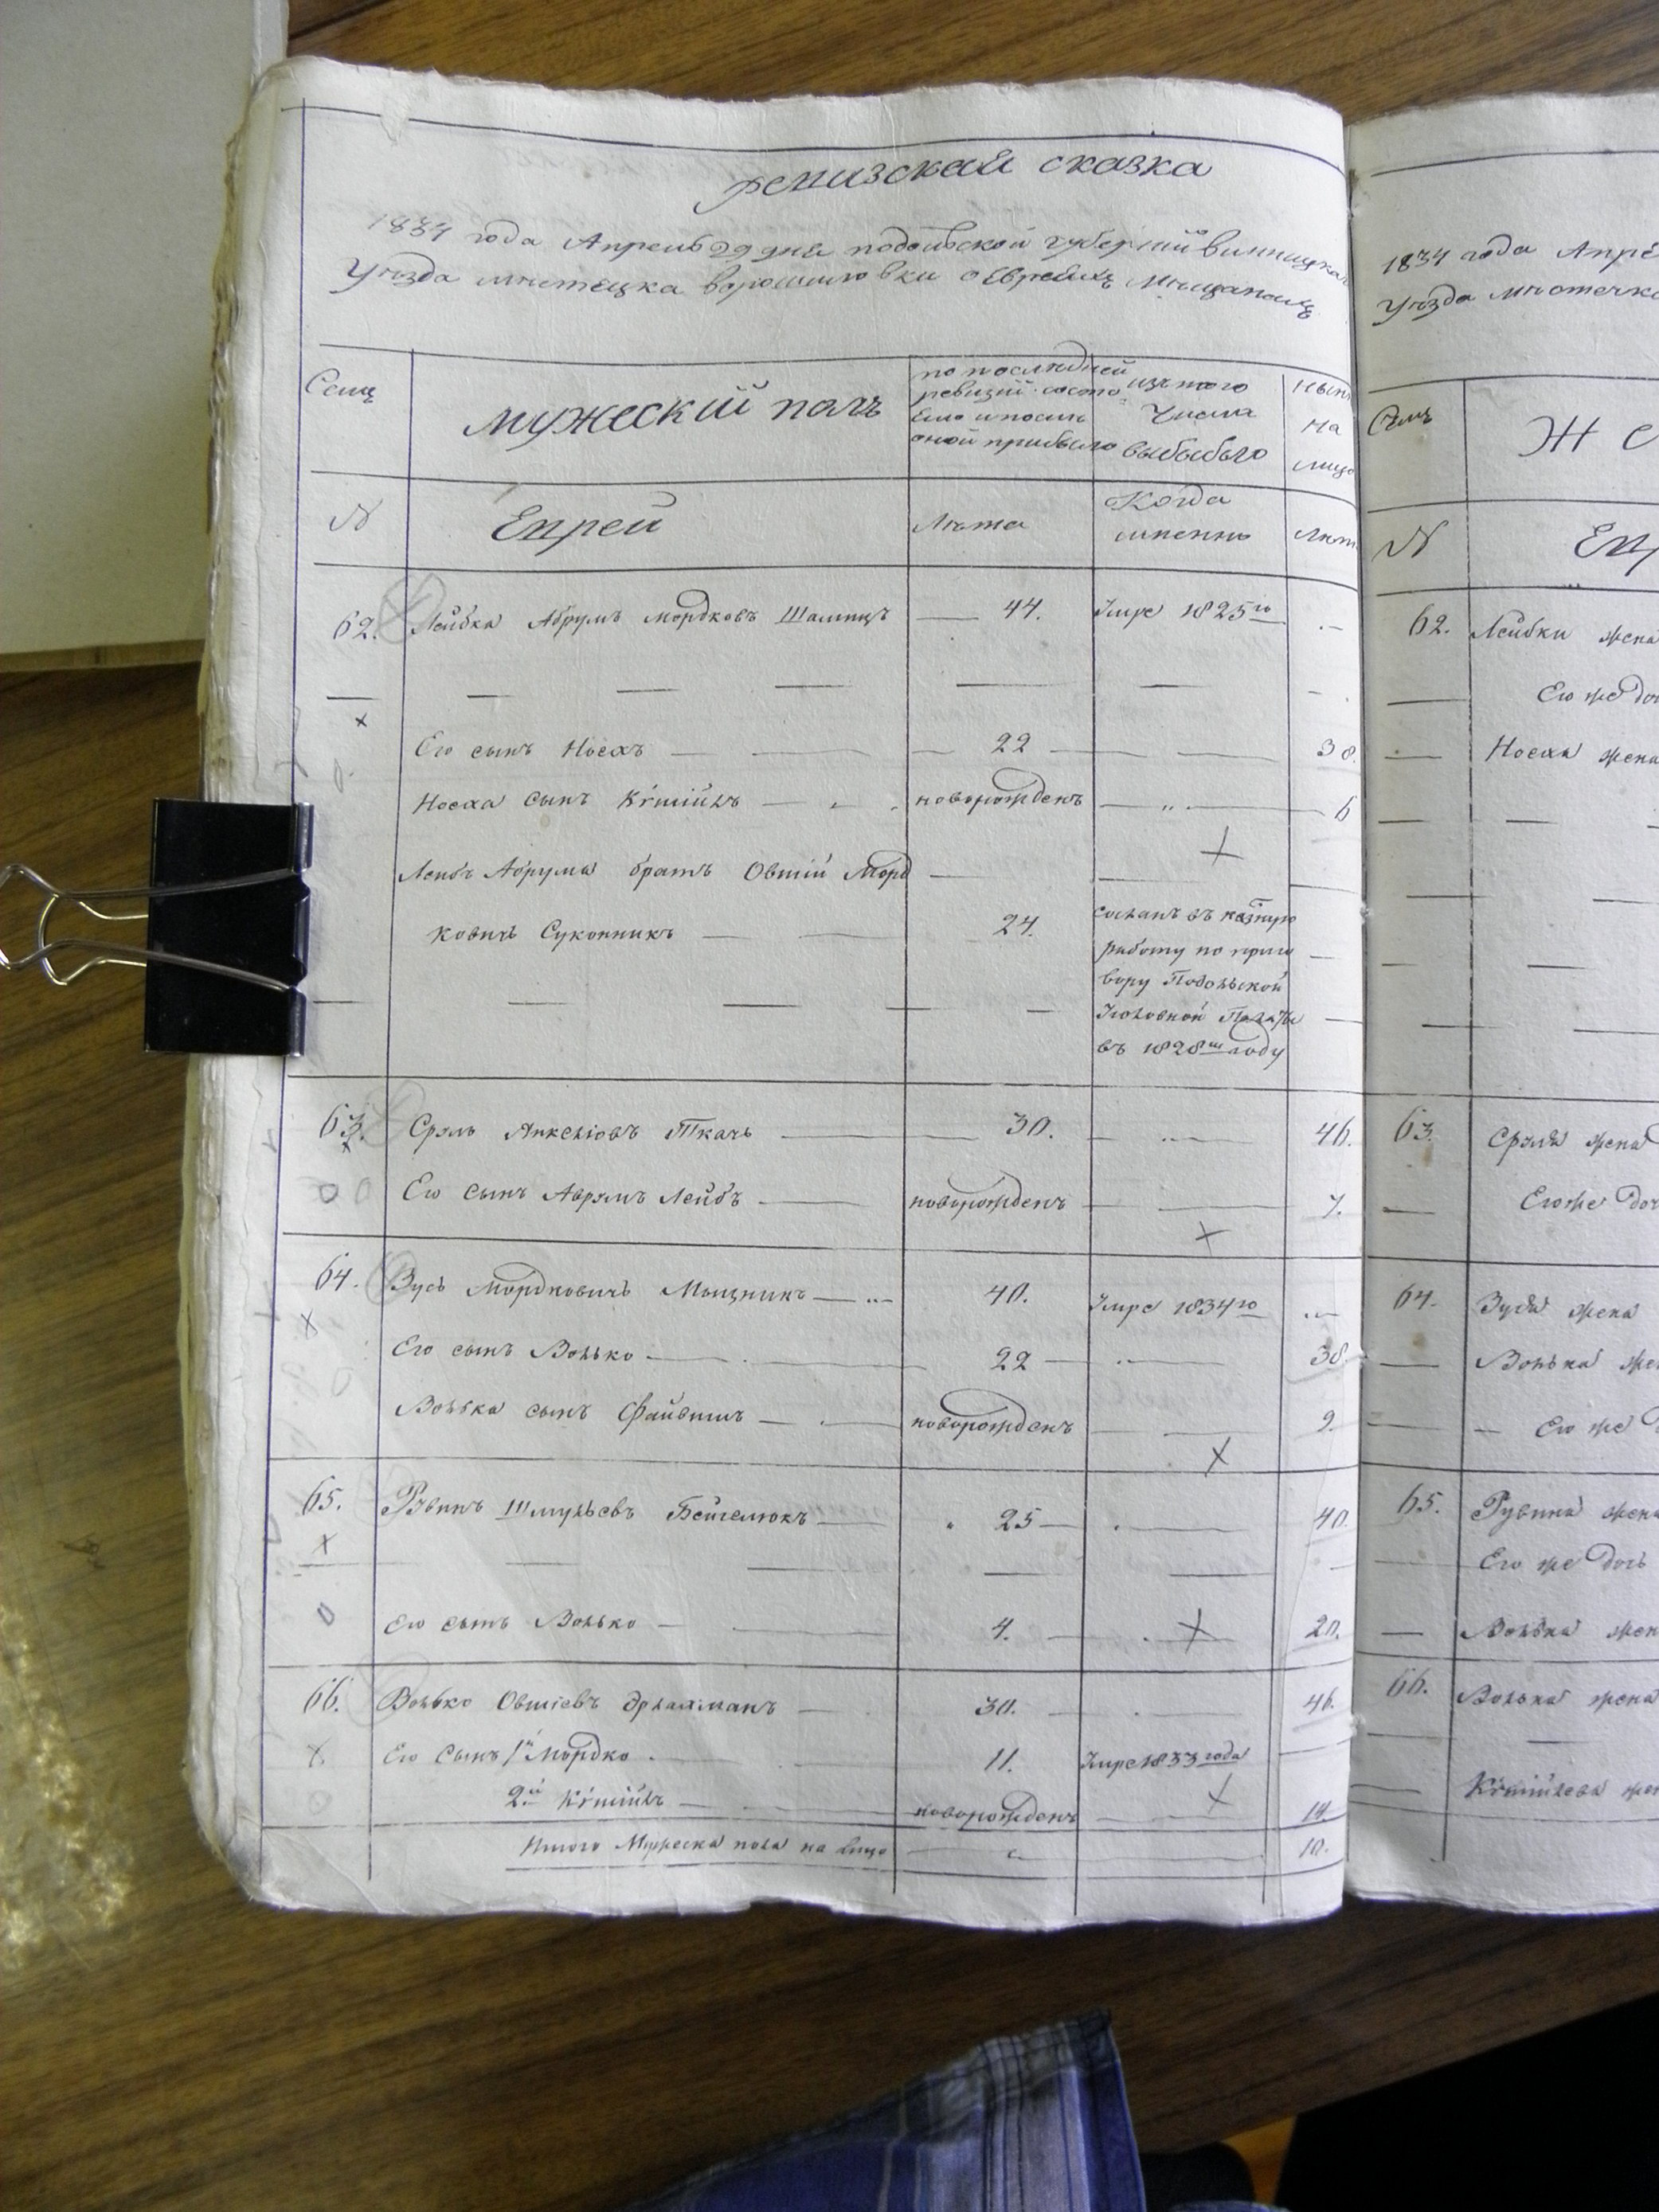 ревизская сказка
1834 года Апреля 29 дня подольской губернии винницкаго
уезда мѣстечка ворошиловки о Евреяхъ мѣщанахъ
Семь
мужескій полъ
по последней
ревизіи состо
яло и после
оной прибыло
изъ того
числа
выбыло
ныне
на
лицо
№
Евреи
Лѣта
Когда
именно
лѣта
62. Лейбка Абрумъ Мордковъ Шамицъ — 44. Умре 1825го
Его сынъ Носахъ — 22 — 38.
Носаха сынъ Кгмийлъ — новорожденъ — 6
Лейбъ Абрума братъ Овшій Морд
ковичъ Суконникъ — 24. сосланъ въ казную
работу по приго
вору Подольской
Уголовной Палаты
въ 1828м году
63. Сруль Анкеліовъ Ткачь — 30. — 46.
Его сынъ Аврумъ Лейбъ — новорожденъ — 7.
64. Зусь Мордковичъ Мыцникъ — 40. Умре 1834го
Его сынъ Волько — 22 — 38
Волька сынъ Файвишъ — новорожденъ — 9.
65. Рувинъ Шмульевъ Бейгелюкъ — 25 — 40.
Его сынъ Волько — 4. — 20.
66. Волько Овшіевъ Эрлахманъ — 30. — 46.
Его сынъ 1й Мордко. 11. Умре 1833 года
2й Кгмийлъ — новорожденъ — 14.
Итого Мужеска пола на лицо — 10.
1834 года Апре
уезда мѣстечка
Семь
Же
№
Евр
62. Лейбки жена
Его же доч
Носаха жена
63. Сруля жена
Его же доч
64. Зуся жена
Волька же
— Его же д
65. Рувина жена
Его же дочь
Волька жен
66. Волька жена
Кгмийлева жен